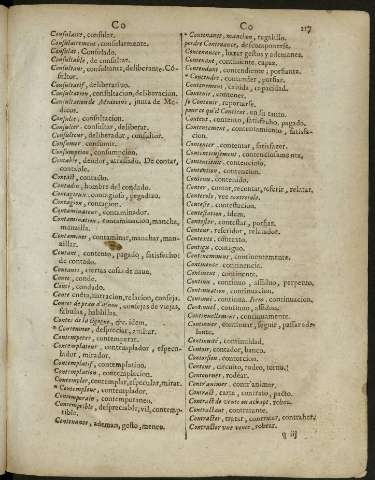 Co
Co
217
Consulaire, consular.
Consulairement, consularmente.
Consulat, Consulado.
Consultable, de consultar.
Consultant, consultante, deliberante, Cósultor.
Consultatif, deliberativo.
Consultation, consultacion, deliberacion.
Consultation de Medecins, junta de Medicos.
Consulte, consultacion.
Consulter, consultar, deliberar.
Consulteur, deliberador, consultor.
Consumer, consumir.
Consumption, consumpcion.
Contable, deudor, atrasado. De contar, contable.
Contact, contacto.
Contadin, hombre del condado.
Contagieux, contagioso, pegadizo.
Contagion, contagion.
Contaminateur, contaminador.
Contamination, contaminacion, mancha, manzilla.
Contaminer, contaminar, manchar, manzillar.
Contant, contento, pagado, satisfecho de contado.
Conte, conde.
Conté, condado.
Conte cuéta, narracion, relacion, conseja.
fabulas, hablillas.
Contes de la cigogne, idem.
Contemner, despreciar,
Contempler, contemplar.
Contemplateur, contemplador, especulador, mirador.
Contemplatif, contemplativo.
Contemplation, contemplacion.
Contempler, contemplar, especular, mirar.
Contempteur,
Contemporain, contemporaneo.
Contemptible, despreciable, vil, contemptible.
Contenance, ademan, gesto, meneo.
Contenance,
perdre Contenance, descomponerse.
Contenancer, hazer gestos y ademanes.
Contenant, continente, capaz.
Contendant, contendiente, porfiante.
Contendre, contender, porfiar.
Contenement, cavida, capacidad.
Contenir, contener.
se Contenir, reportarse.
Content, contento, satisfecho, pagado.
Contentement, contentamiento, satisfacion.
Contenter, contentar, satisfazer.
Contentieusement, contenciosamente.
Contentieux, contencioso.
Contention, contencion.
Contenu, contenido.
Conter, contar, recontar, referir, relatar.
Conteste, contestacion.
Contestation, idem.
Contester, contestar, porfiar.
Conteur, referidor, relatador.
Contexte, contexto.
Contigu, contiguo.
Continence, continencia.
Continent, continente.
Continu, continuo, assiduo, perpetuo.
Continuation, continuacion.
Continuel, continuo, assiduo.
Continuellement, continuamente.
Continuer, continuar, seguir, passar adelante.
Continuité, continuidad.
Contour, circuito, rodeo, torno.
Contourner, rodear.
Contract, carta, contrato, pacto.
Contract de vente ou achapt, robra.
Contractant, contratante.
Contracter, tratar, contratar, contraher.
Contracter une vente, robrar.
q iij